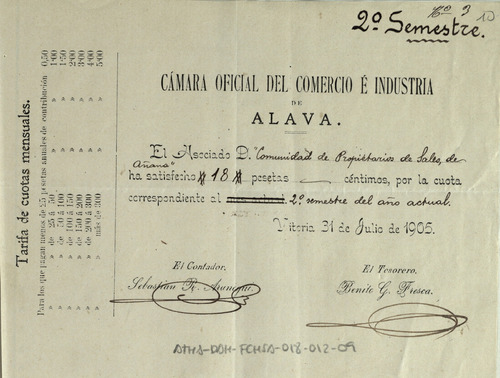 2º Semestre.
CÁMARA OFICIAL DEL COMERCIO É INDUSTRIA
DE
ALAVA.
El Asociado D. "Comunidad de Propietarios de Sales, de
Añana"
ha satisfecho # 18 # pesetas — céntimos, por la cuota
correspondiente al 2º semestre del año actual.
Vitoria 31 de Julio de 1905.
El Contador,
El Tesorero,
Sebastián R.
Benito G. Fresca.
ATHA-DAH-FCHSA-018-012-09
Tarifa de cuotas mensuales.
Para los que pagan menos de 25 pesetas anuales de contribución 0,50
» de 25 á 50 » » 1'00
» de 50 á 100 » » 1'50
» de 100 á 150 » » 2'00
» de 150 á 200 » » 3'00
» de 200 á 300 » » 4'00
» más de 300 » » 5'00